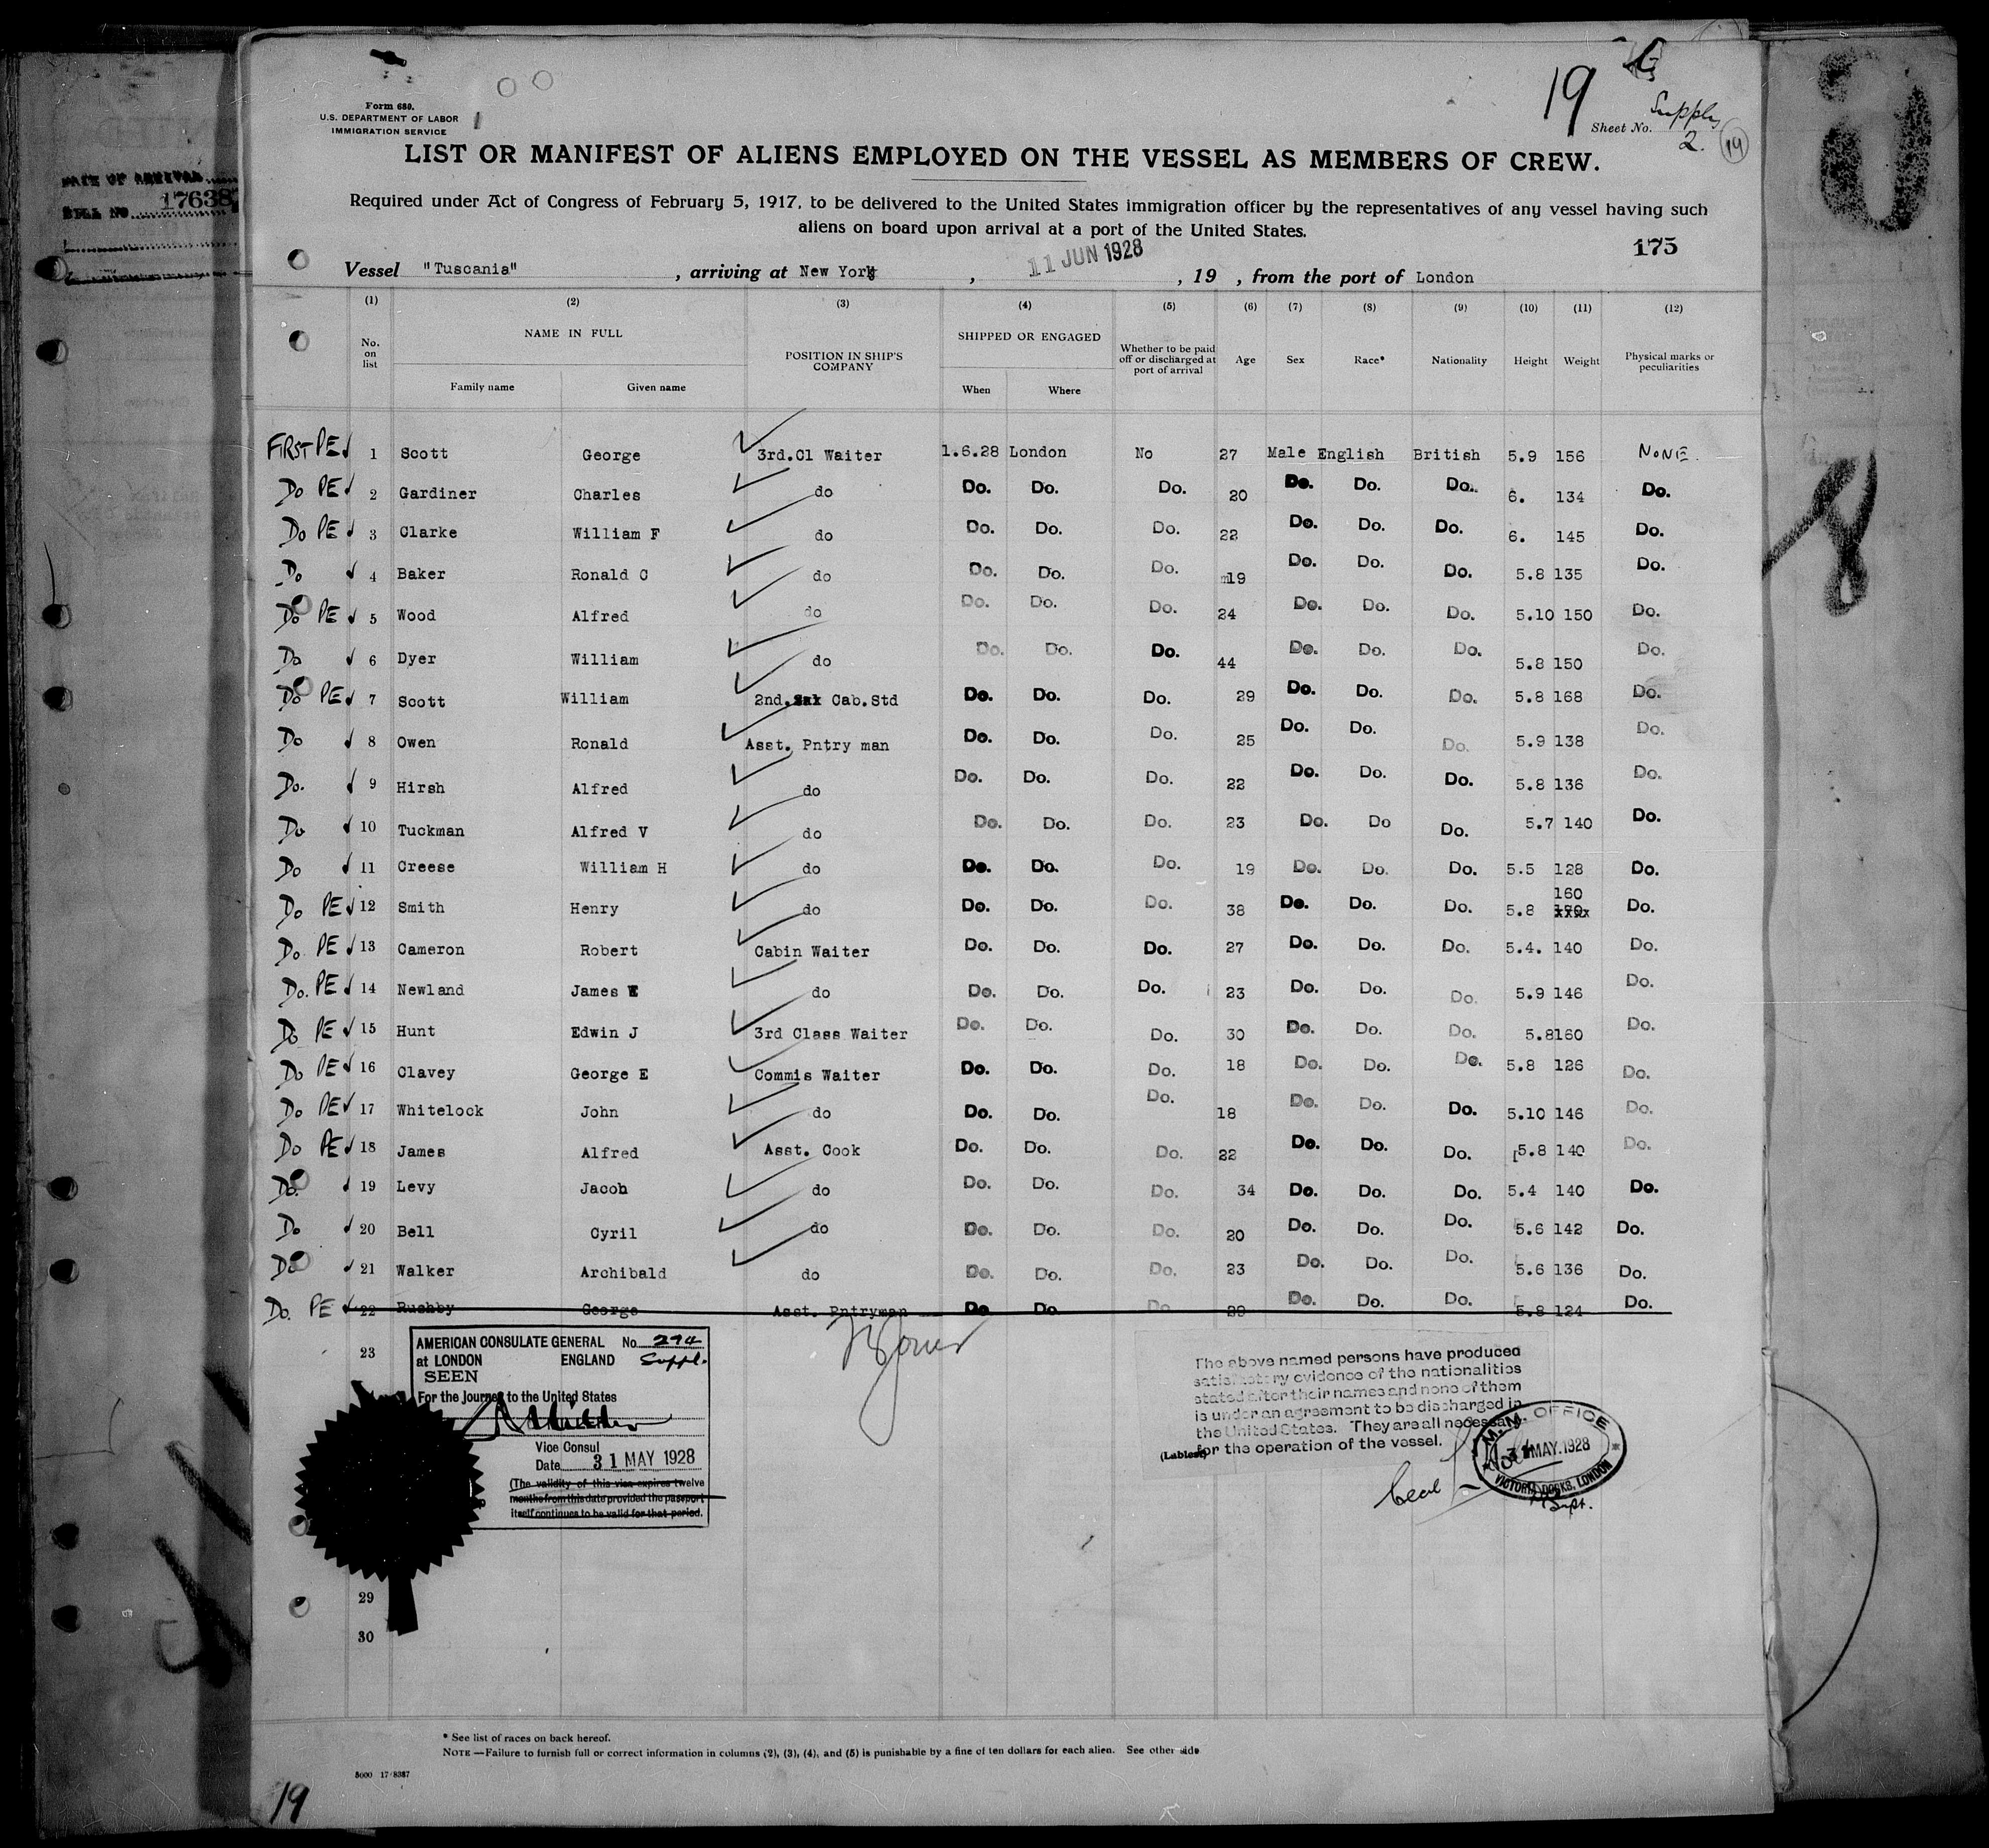 DATE OF ARRIVAL
BILL NO. 17638
19
Supply
Sheet No. 2. 19
Form 689.
U.S. DEPARTMENT OF LABOR
IMMIGRATION SERVICE
LIST OR MANIFEST OF ALIENS EMPLOYED ON THE VESSEL AS MEMBERS OF CREW.
Required under Act of Congress of February 5, 1917, to be delivered to the United States immigration officer by the representatives of any vessel having such
aliens on board upon arrival at a port of the United States.
175
Vessel "Tuscania", arriving at New York, 11 JUN 1928, 19 , from the port of London
(1) (2) (3) (4) (5) (6) (7) (8) (9) (10) (11) (12)
No. on list NAME IN FULL Family name Given name POSITION IN SHIP'S COMPANY SHIPPED OR ENGAGED When Where Whether to be paid off or discharged at port of arrival Age Sex Race* Nationality Height Weight Physical marks or peculiarities
FIRST PE 1 Scott George 3rd.Cl Waiter 1.6.28 London No 27 Male English British 5.9 156 NONE.
Do PE 2 Gardiner Charles do Do. Do. Do. 20 Do. Do. Do. 6. 134 Do.
Do PE 3 Clarke William F do Do. Do. Do. 22 Do. Do. Do. 6. 145 Do.
Do 4 Baker Ronald C do Do. Do. Do. 19 Do. Do. Do. 5.8 135 Do.
Do PE 5 Wood Alfred do Do. Do. Do. 24 Do. Do. Do. 5.10 150 Do.
Do 6 Dyer William do Do. Do. Do. 44 Do. Do. Do. 5.8 150 Do.
Do PE 7 Scott William 2nd. Cab.Std Do. Do. Do. 29 Do. Do. Do. 5.8 168 Do.
Do 8 Owen Ronald Asst. Pntry man Do. Do. Do. 25 Do. Do. Do. 5.9 138 Do.
Do. 9 Hirsh Alfred do Do. Do. Do. 22 Do. Do. Do. 5.8 136 Do.
Do 10 Tuckman Alfred V do Do. Do. Do. 23 Do. Do Do. 5.7 140 Do.
Do 11 Creese William H do Do. Do. Do. 19 Do. Do. Do. 5.5 128 Do.
Do PE 12 Smith Henry do Do. Do. Do. 38 Do. Do. Do. 5.8 160 Do.
Do. PE 13 Cameron Robert Cabin Waiter Do. Do. Do. 27 Do. Do. Do. 5.4. 140 Do.
Do. PE 14 Newland James E do Do. Do. Do. 23 Do. Do. Do. 5.9 146 Do.
Do PE 15 Hunt Edwin J 3rd Class Waiter Do. Do. Do. 30 Do. Do. Do. 5.8 160 Do.
Do PE 16 Clavey George E Commis Waiter Do. Do. Do. 18 Do. Do. Do. 5.8 126 Do.
Do PE 17 Whitelock John do Do. Do. Do. 18 Do. Do. Do. 5.10 146 Do.
Do PE 18 James Alfred Asst. Cook Do. Do. Do. 22 Do. Do. Do. 5.8 140 Do.
Do. 19 Levy Jacob do Do. Do. Do. 34 Do. Do. Do. 5.4 140 Do.
Do 20 Bell Cyril do Do. Do. Do. 20 Do. Do. Do. 5.6 142 Do.
Do 21 Walker Archibald do Do. Do. Do. 23 Do. Do. Do. 5.6 136 Do.
Do. PE 22 Rushby George Asst. Pntryman Do Do. Do Do. Do. Do. 5.8 124 Do.
23
AMERICAN CONSULATE GENERAL No. 274
at LONDON ENGLAND Suppl.
SEEN
For the Journey to the United States
Vice Consul
Date 31 MAY 1928
(The validity of this visa expires twelve
months from this date provided the passport
itself continues to be valid for that period.
The above named persons have produced
satisfactory evidence of the nationalities
stated after their names and none of them
is under an agreement to be discharged in
the United States. They are all necessary
for the operation of the vessel.
M.M. OFFICE
31 MAY.1928
VICTORIA DOCKS, LONDON
Supt.
29
30
* See list of races on back hereof.
NOTE.—Failure to furnish full or correct information in columns (2), (3), (4), and (5) is punishable by a fine of ten dollars for each alien. See other side
5000 17/8387
19